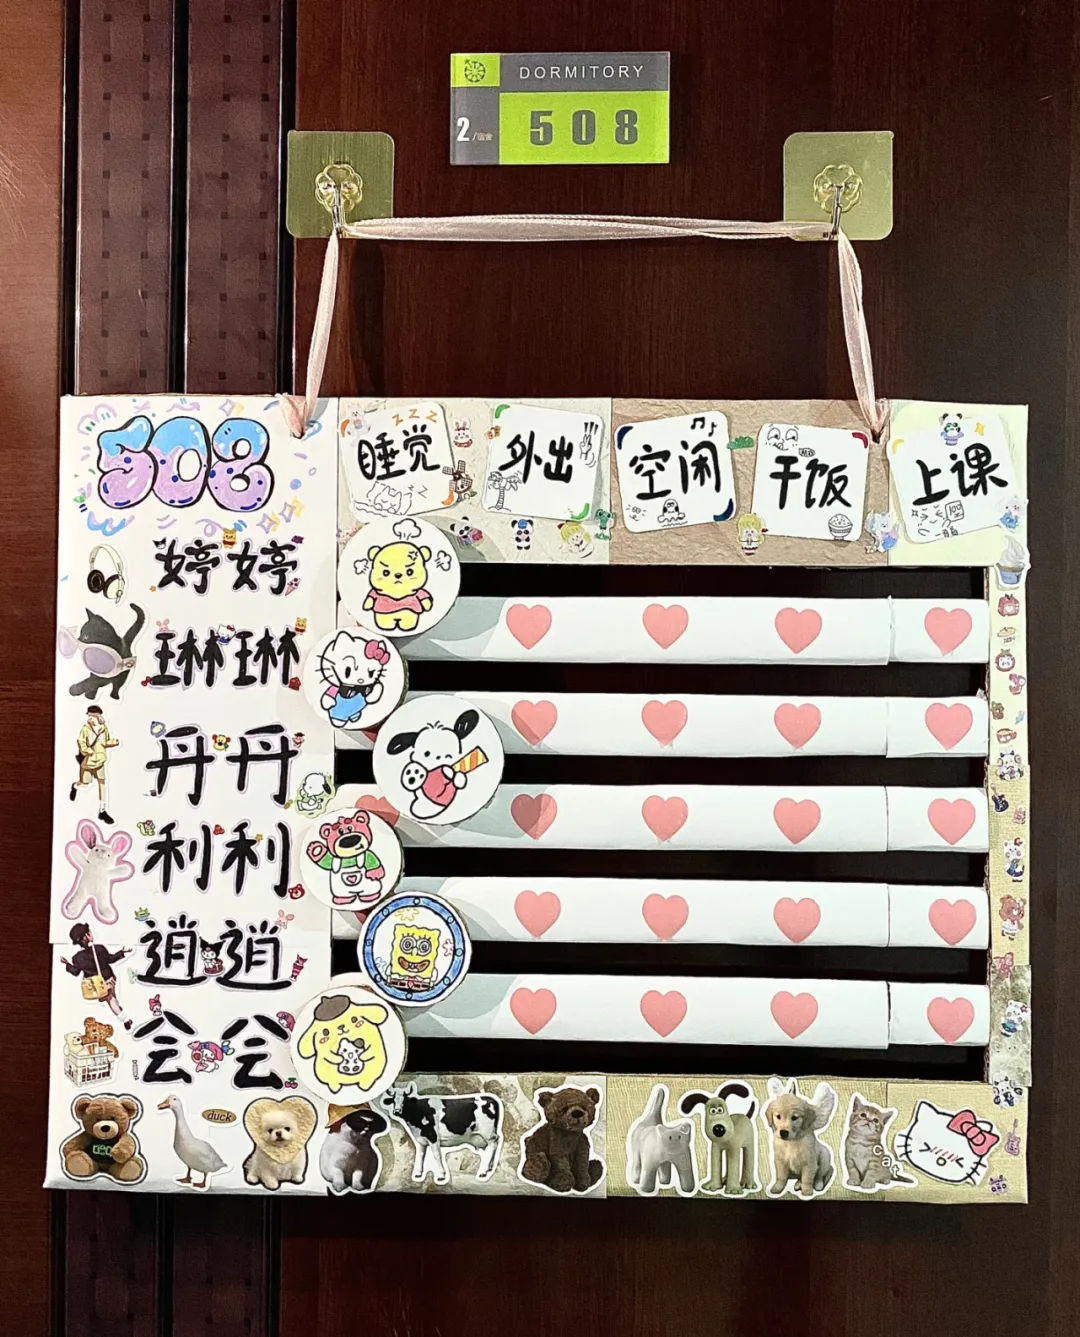 DORMITORY
2/宿舍 508
508
睡觉 外出 空闲 干饭 上课
zzzz
100
婷婷
琳琳
丹丹
利利
逍逍
会会
duck
cat